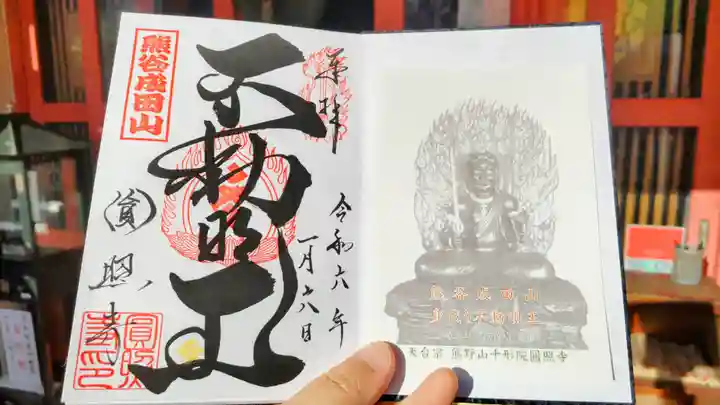 奉拝
令和六年
一月六日
不動明王
熊谷成田山
圓照寺
熊谷成田山
不動明王
天台宗 熊野山千形院圓照寺